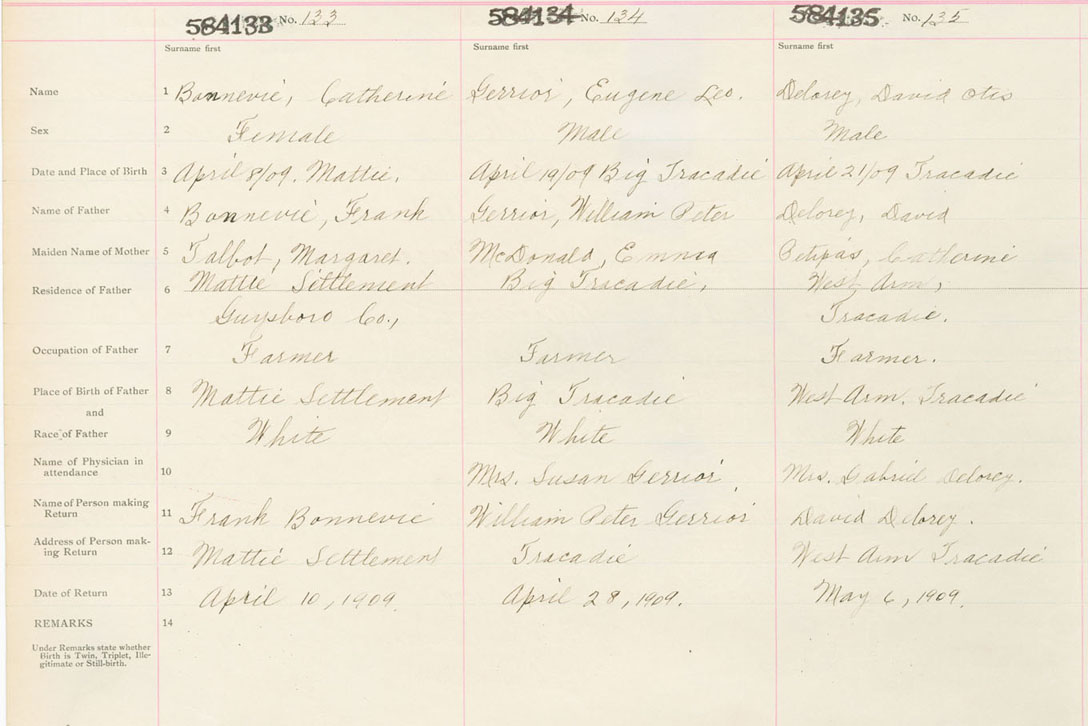 584133 No. 133 584134 No. 134 584135 No. 135
Surname first Surname first Surname first
Name 1 Bonnevie, Catherine Gerrior, Eugene Leo. Delorey, David Otis
Sex 2 Female Male Male
Date and Place of Birth 3 April 8/09. Mattie. April 19/09 Big Tracadie April 21/09 Tracadie
Name of Father 4 Bonnevie, Frank Gerrior, William Peter Delorey, David
Maiden Name of Mother 5 Talbot, Margaret. McDonald, Emma Petipas, Catherine
Residence of Father 6 Mattie Settlement Big Tracadie, West Arm,
Guysboro Co., Tracadie.
Occupation of Father 7 Farmer Farmer Farmer.
Place of Birth of Father 8 Mattie Settlement Big Tracadie West Arm. Tracadie
and
Race of Father 9 White White White
Name of Physician in
attendance 10 Mrs. Susan Gerrior Mrs. Gabriel Delorey.
Name of Person making
Return 11 Frank Bonnevie William Peter Gerrior David Delorey.
Address of Person mak-
ing Return 12 Mattie Settlement Tracadie West Arm Tracadie
Date of Return 13 April 10, 1909. April 28, 1909. May 6, 1909.
REMARKS 14
Under Remarks state whether
Birth is Twin, Triplet, Ille-
gitimate or Still-birth.